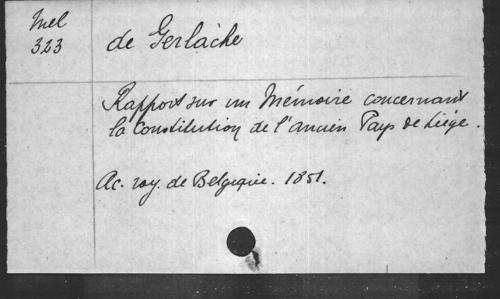 Mel
323
de Gerlache
Rapport sur un Mémoire concernant
la Constitution de l'ancien Pays de Liége.
Ac. roy. de Belgique. 1851.